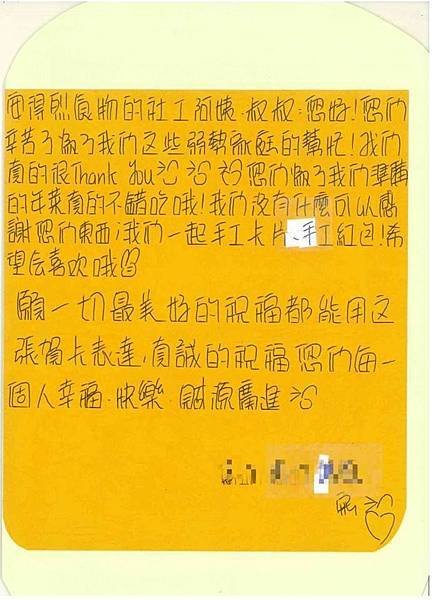 安得烈食物的社工阿姨.叔叔:您好!您們
辛苦了做了我們这些弱勢家庭的幫忙!我們
真的很Thank You 您們做了我們準備
的年菜真的不錯吃哦!我們沒有什麼可以感
謝您們東西,我們一起手工卡片、手工紅包!希
望会喜欢哦
願一切最美好的祝福都能用这
張賀卡表達,真誠的祝福您們每一
個人幸福.快樂.財源廣進